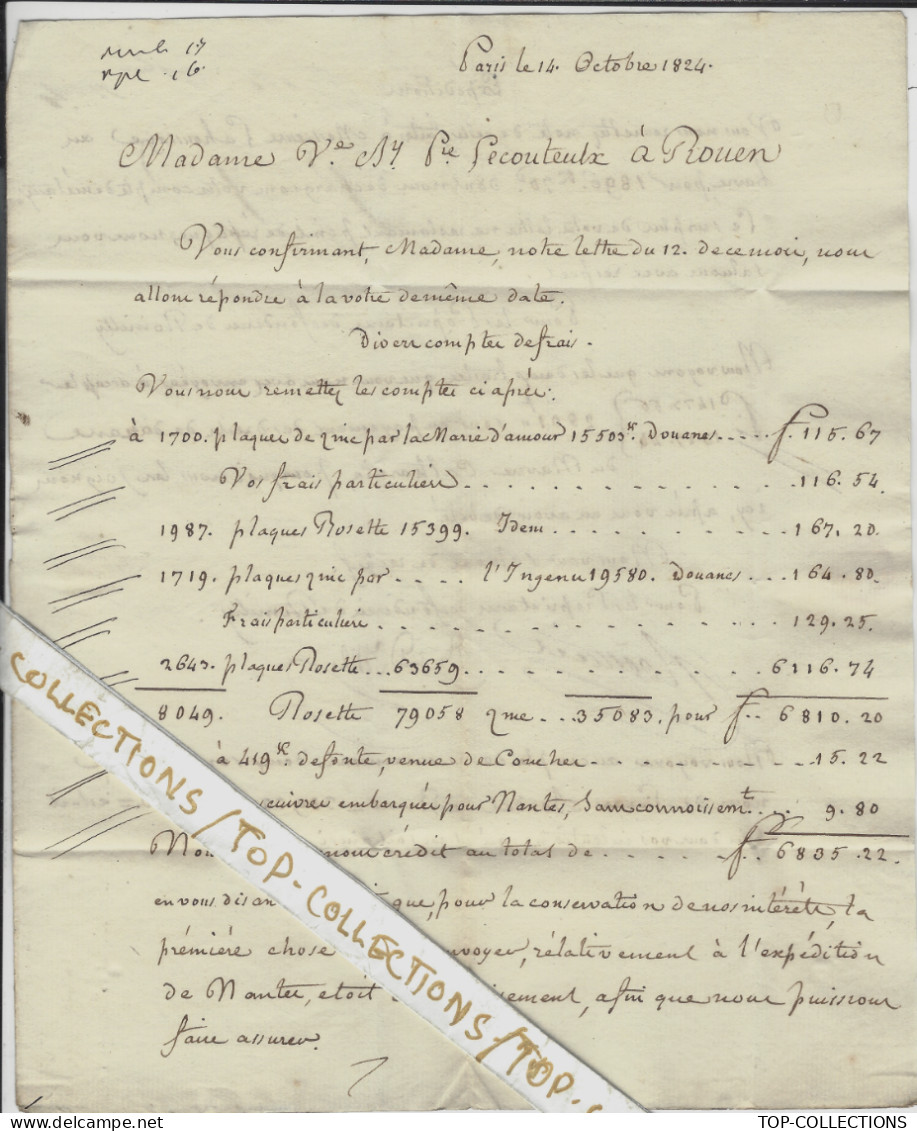 Paris le 14. Octobre 1824.
Madame V.e Pre Lecouteulx à Rouen
Vous confirmant, Madame, notre lettre du 12. de ce mois, nous
allons répondre à la votre de même date.
Divers comptes de frais.
Vous nous remettez les comptes ci après:
à 1700. plaques de zinc par la Marie d'amour 15503k. Douanes ..... f. 115.67
Vos frais particuliers .......... 116.54
1987. plaques Rosette 15399. Idem .......... 167.20
1719. plaques zinc par .... l'Ingenu 19580. Douanes ... 164.80
Frais particuliers .......... 129.25
2643. plaques Rosette ... 63659 .......... 6116.74
8049. Rosette 79058 zinc .. 35083. pour f.. 6810.20
à 419k. de fonte, venue de Couches .......... 15.22
cuivres embarqués pour Nantes, sans connoissemt. .. 9.80
nous crédit au total de ..... f. 6835.22
en vous disant que, pour la conservation de nos intérêts, la
prémière chose rélativement à l'expédition
de Nantes, etoit afin que nous puissions
faire assurer.
COLLECTIONS / TOP-COLLECTIONS / TOP-C
TOP-COLLECTIONS